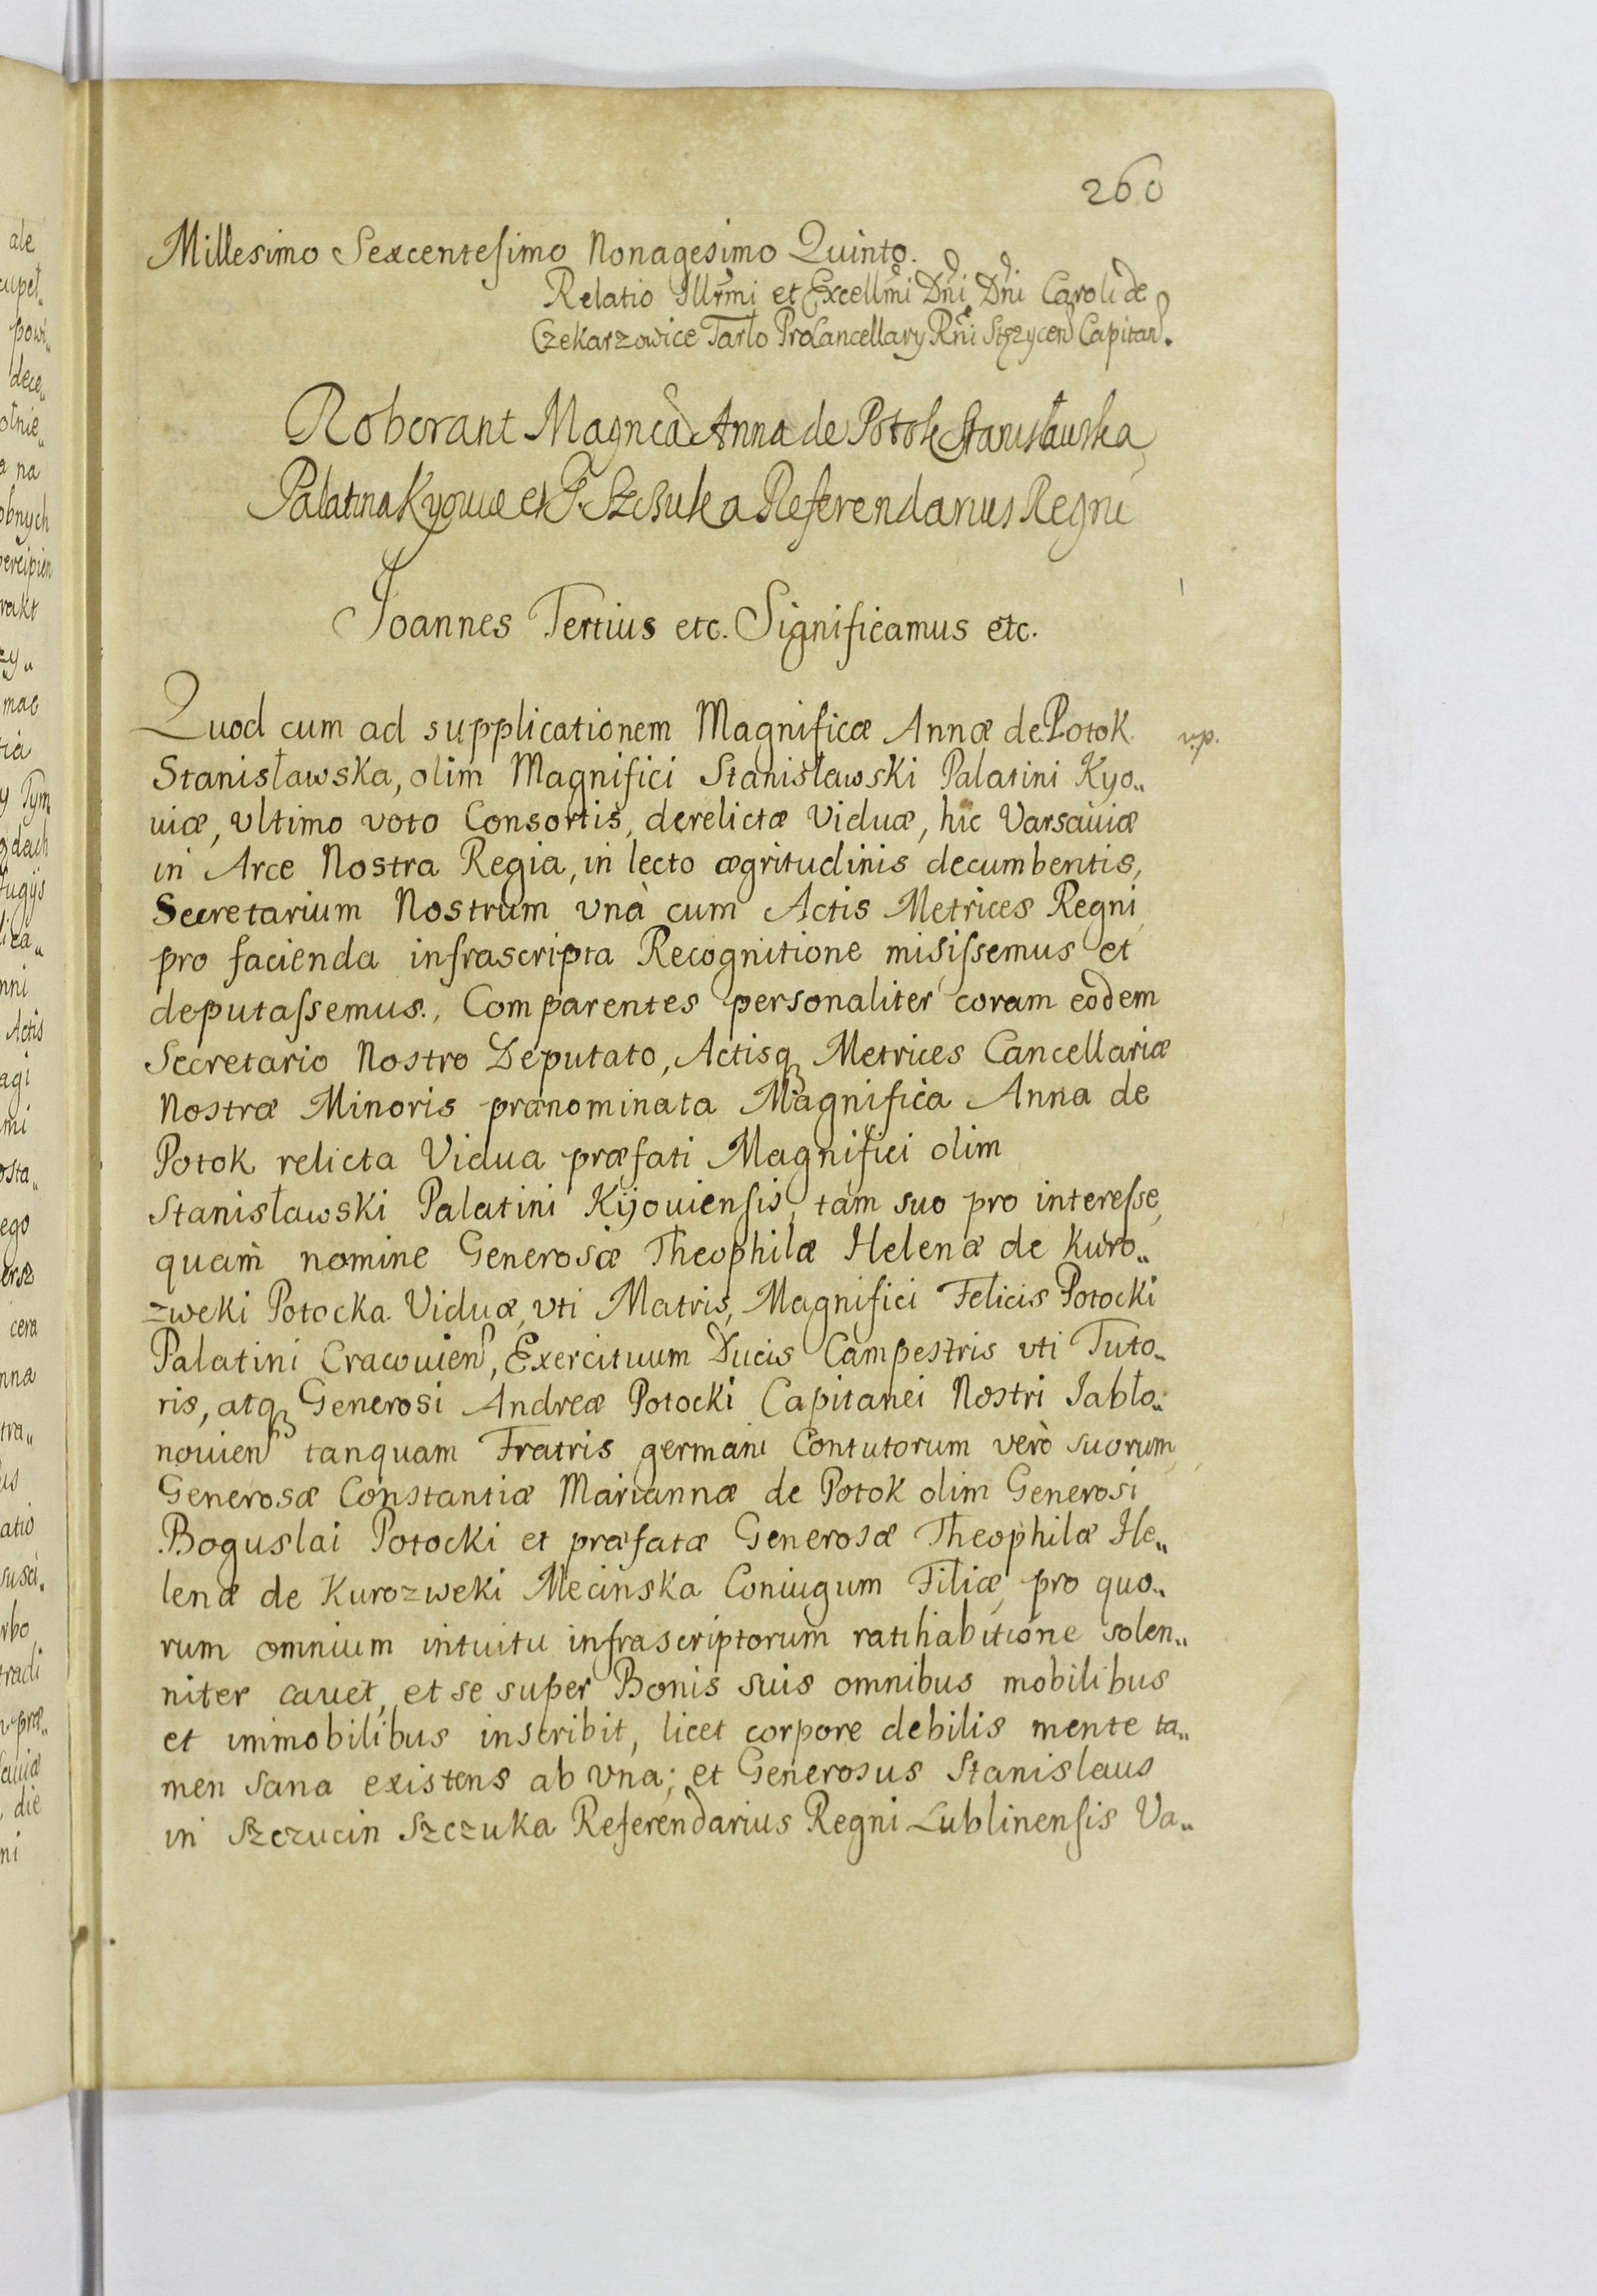 260
Millesimo Sexcentesimo Nonagesimo Quinto.
Relatio Illrmi et Excellmi Dni Dni Caroli de
Czekarzowice Tarlo ProCancellary Rni Stężycen Capitan.
Roborant Magnca Anna de Potok Stanisławska
Palatina Kyouiæ et Szczuka Referendarius Regni
Joannes Tertius etc. Significamus etc.
Quod cum ad supplicationem Magnificæ Annæ de Potok
Stanisławska, olim Magnifici Stanisławski Palatini Kyo„
uiæ, vltimo voto Consortis, derelictæ Viduæ, hic Varsauiæ
in Arce Nostra Regia, in lecto ægritudinis decumbentis,
Secretarium Nostrum vnà cum Actis Metrices Regni
pro facienda infrascripta Recognitione misiſsemus et
deputaſsemus., Comparentes personaliter coram eodem
Secretario Nostro Deputato, Actisq3 Metrices Cancellariæ
Nostræ Minoris prænominata Magnifica Anna de
Potok relicta Vidua præfati Magnifici olim
Stanisławski Palatini Kijouienſis, tam suo pro intereſse,
quam nomine Generosæ Theophilæ Helenæ de Kuro„
zweki Potocka Viduæ, vti Matris, Magnifici Felicis Potocki
Palatini Cracouien, Exercituum Ducis Campestris vti Tuto„
ris, atq3 Generosi Andreæ Potocki Capitanei Nostri Jabło„
nouien tanquam Fratris germani Contutorum verò suorum,
Generosæ Constantiæ Mariannæ de Potok olim Generosi
Boguslai Potocki et præfatæ Generosæ Theophilæ He„
lenæ de Kurozweki Mecinska Coniugum Filiæ, pro quo„
rum omnium intuitu infrascriptorum ratihabitione solen„
niter cauet, et se super Bonis suis omnibus mobilibus
et immobilibus inscribit, licet corpore debilis mente ta„
men sana existens ab vna; et Generosus Stanislaus
in Szczucin Szczuka Referendarius Regni Lublinenſis Va„